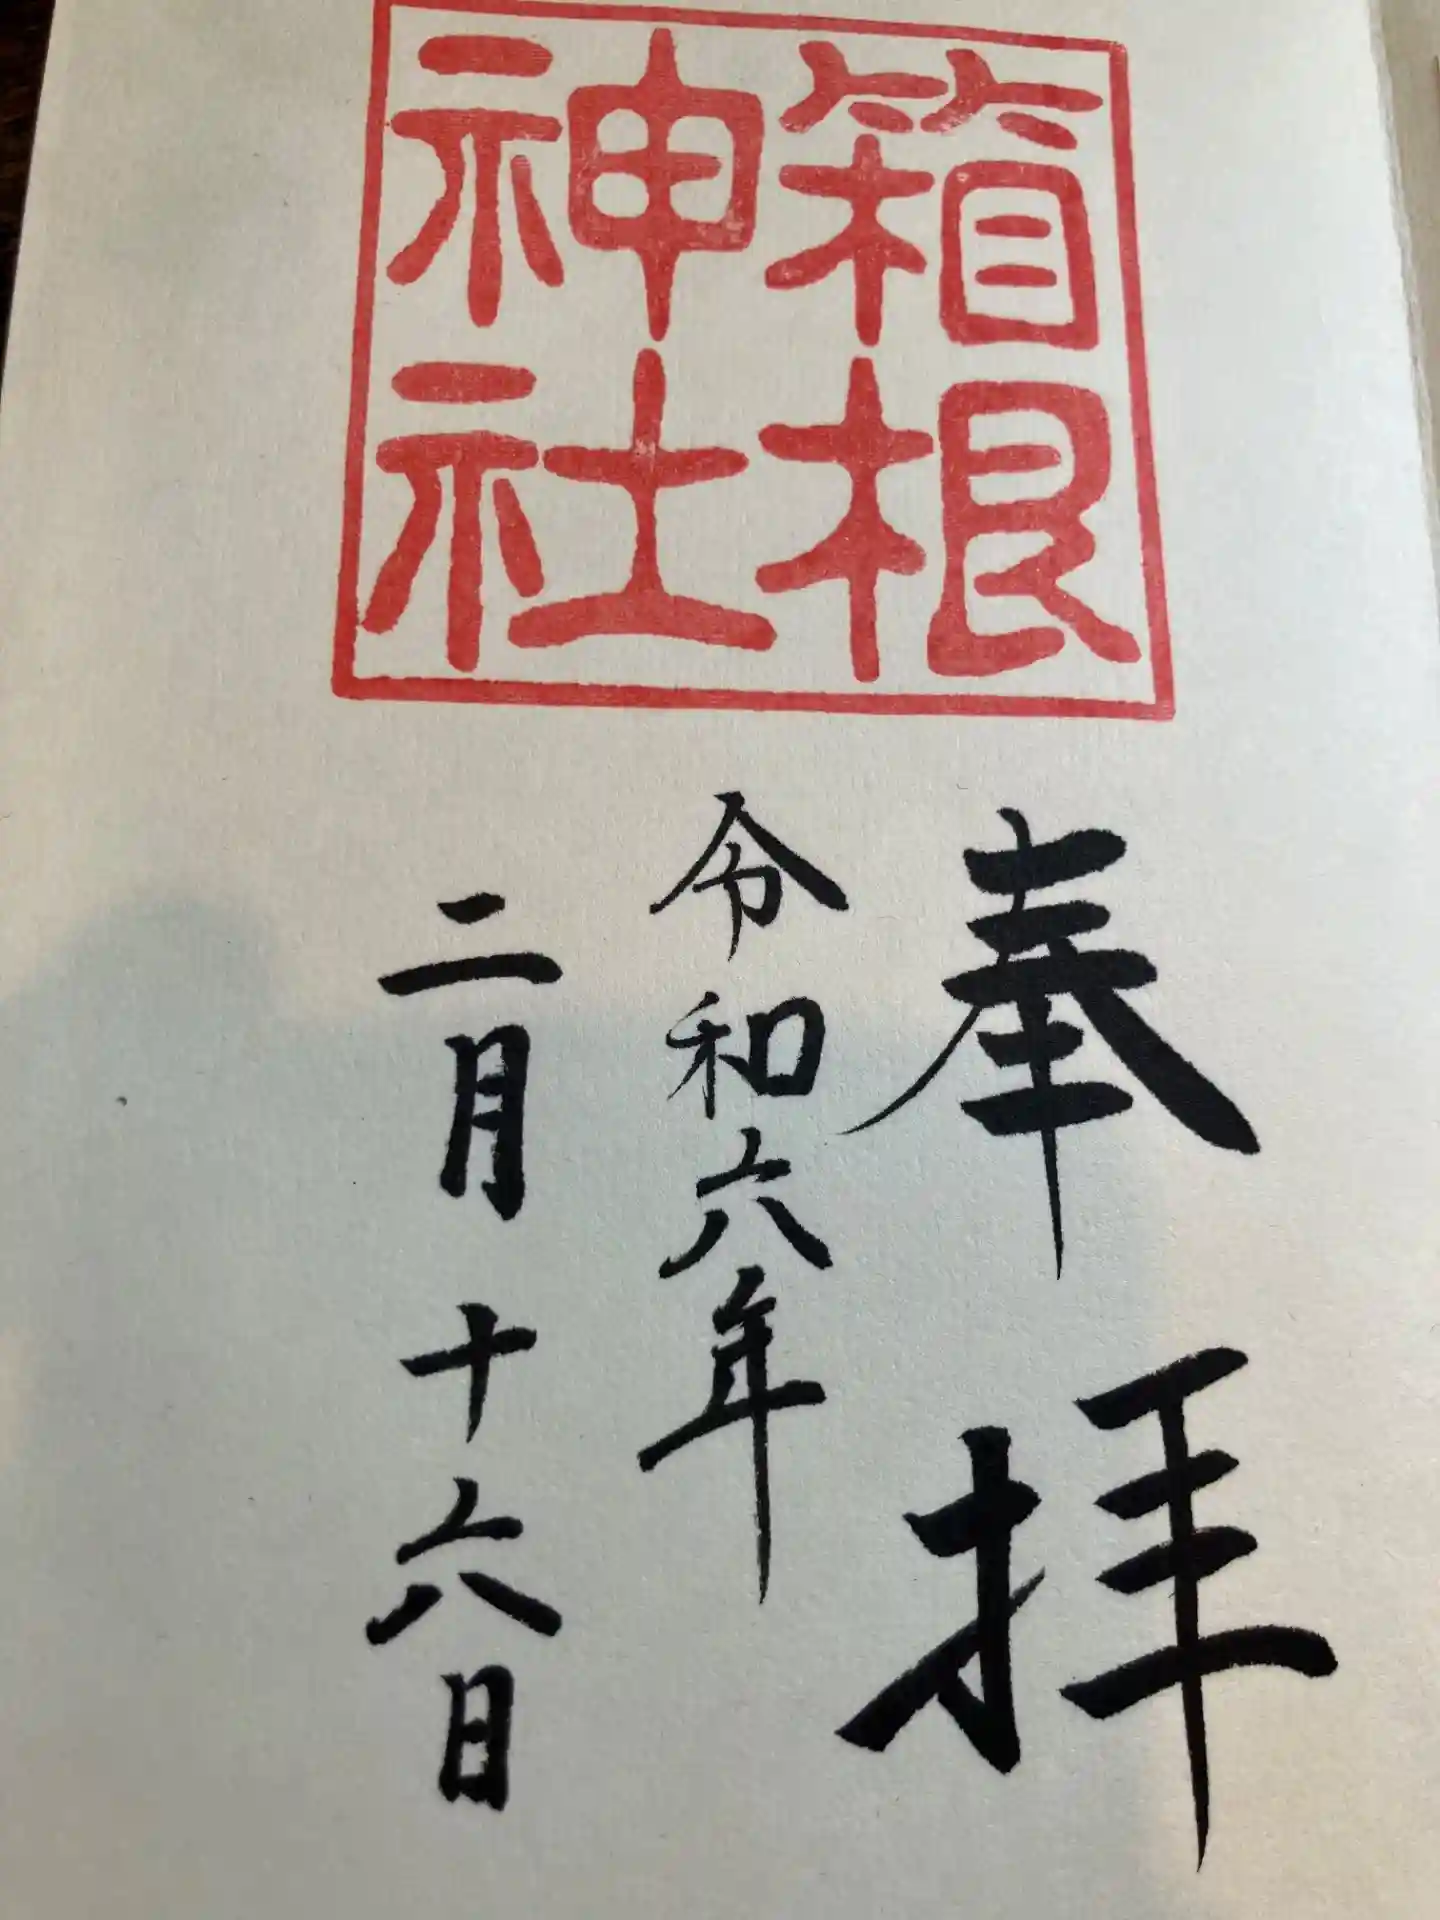 箱根
神社
奉拝
令和六年
二月十六日